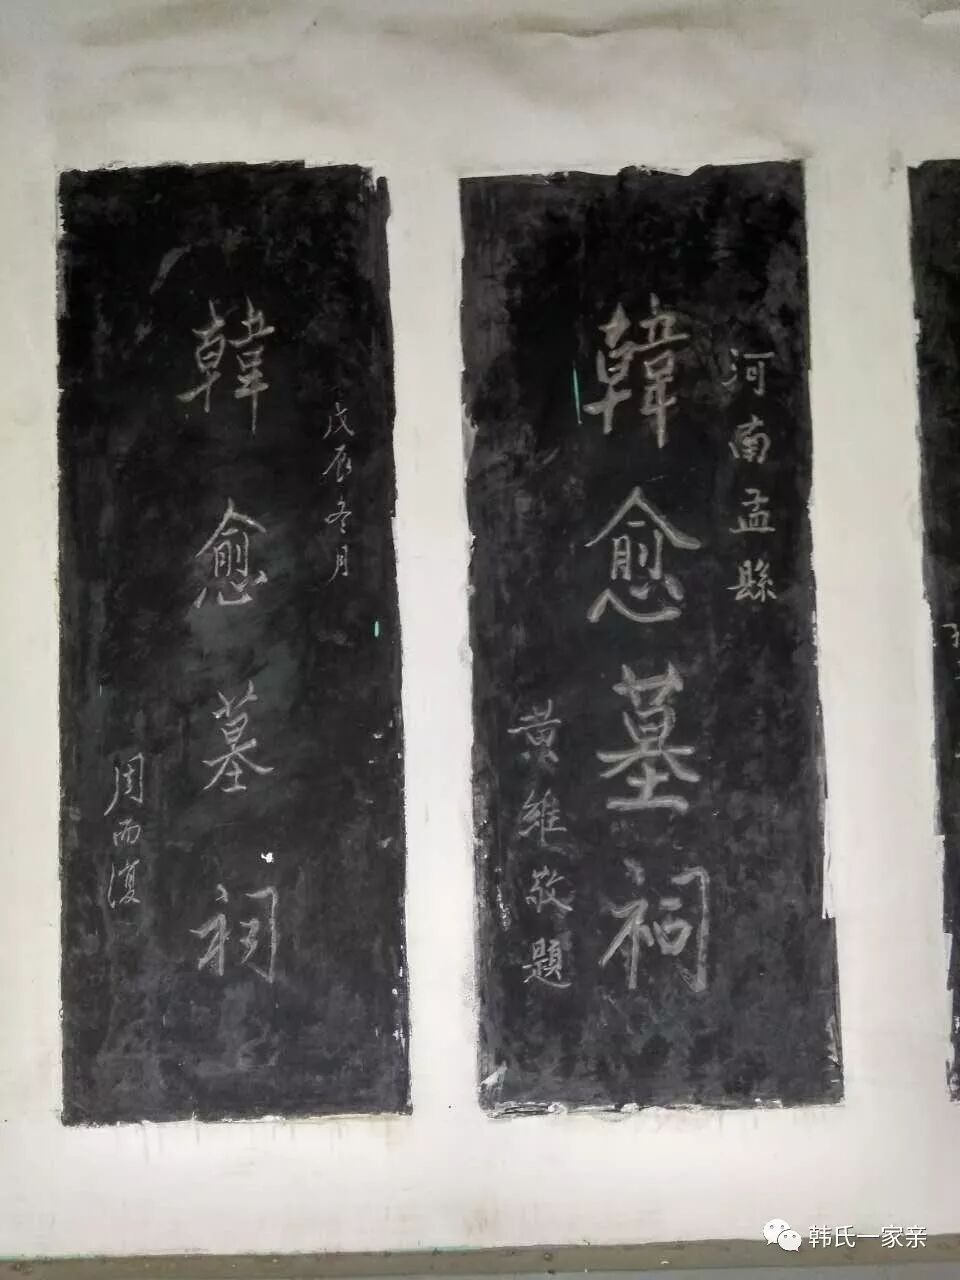 河南孟縣
韓愈墓祠
黄維敬題
戊辰冬月
韓愈墓祠
周而復
韩氏一家亲